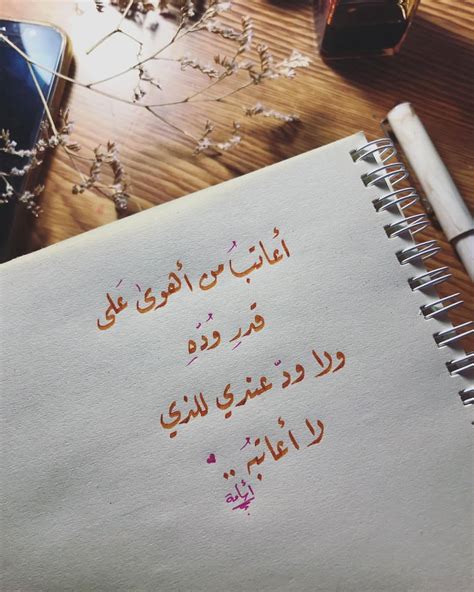 أعاتبُ من أهوىٰ عَلى
قدرِ وُدّهِ
ولا ودّ عندي للذي
لا أعاتبُهُ ..